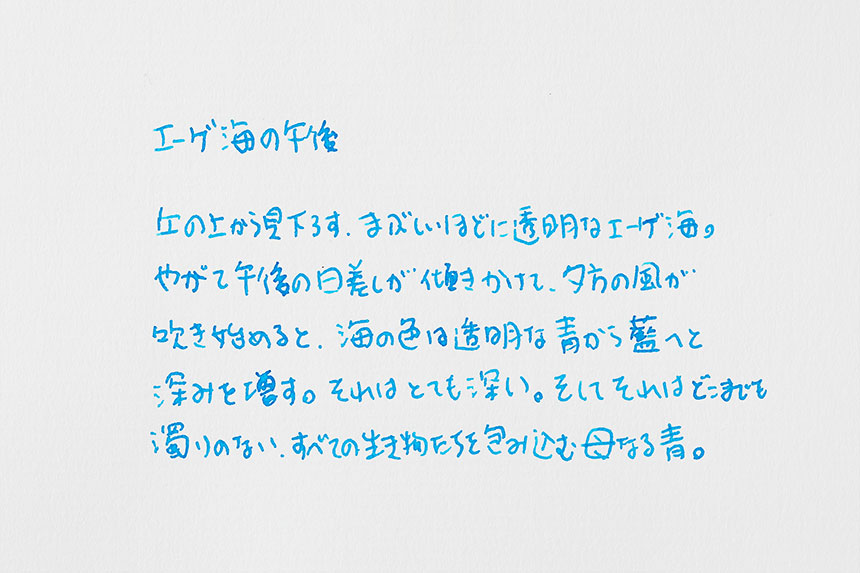 エーゲ海の午後
丘の上から見下ろす、まぶしいほどに透明なエーゲ海。
やがて午後の日差しが傾きかけて、夕方の風が
吹き始めると、海の色は透明な青から藍へと
深みを増す。それはとても深い。そしてそれはどこまでも
濁りのない、すべての生き物たちを包み込む母なる青。